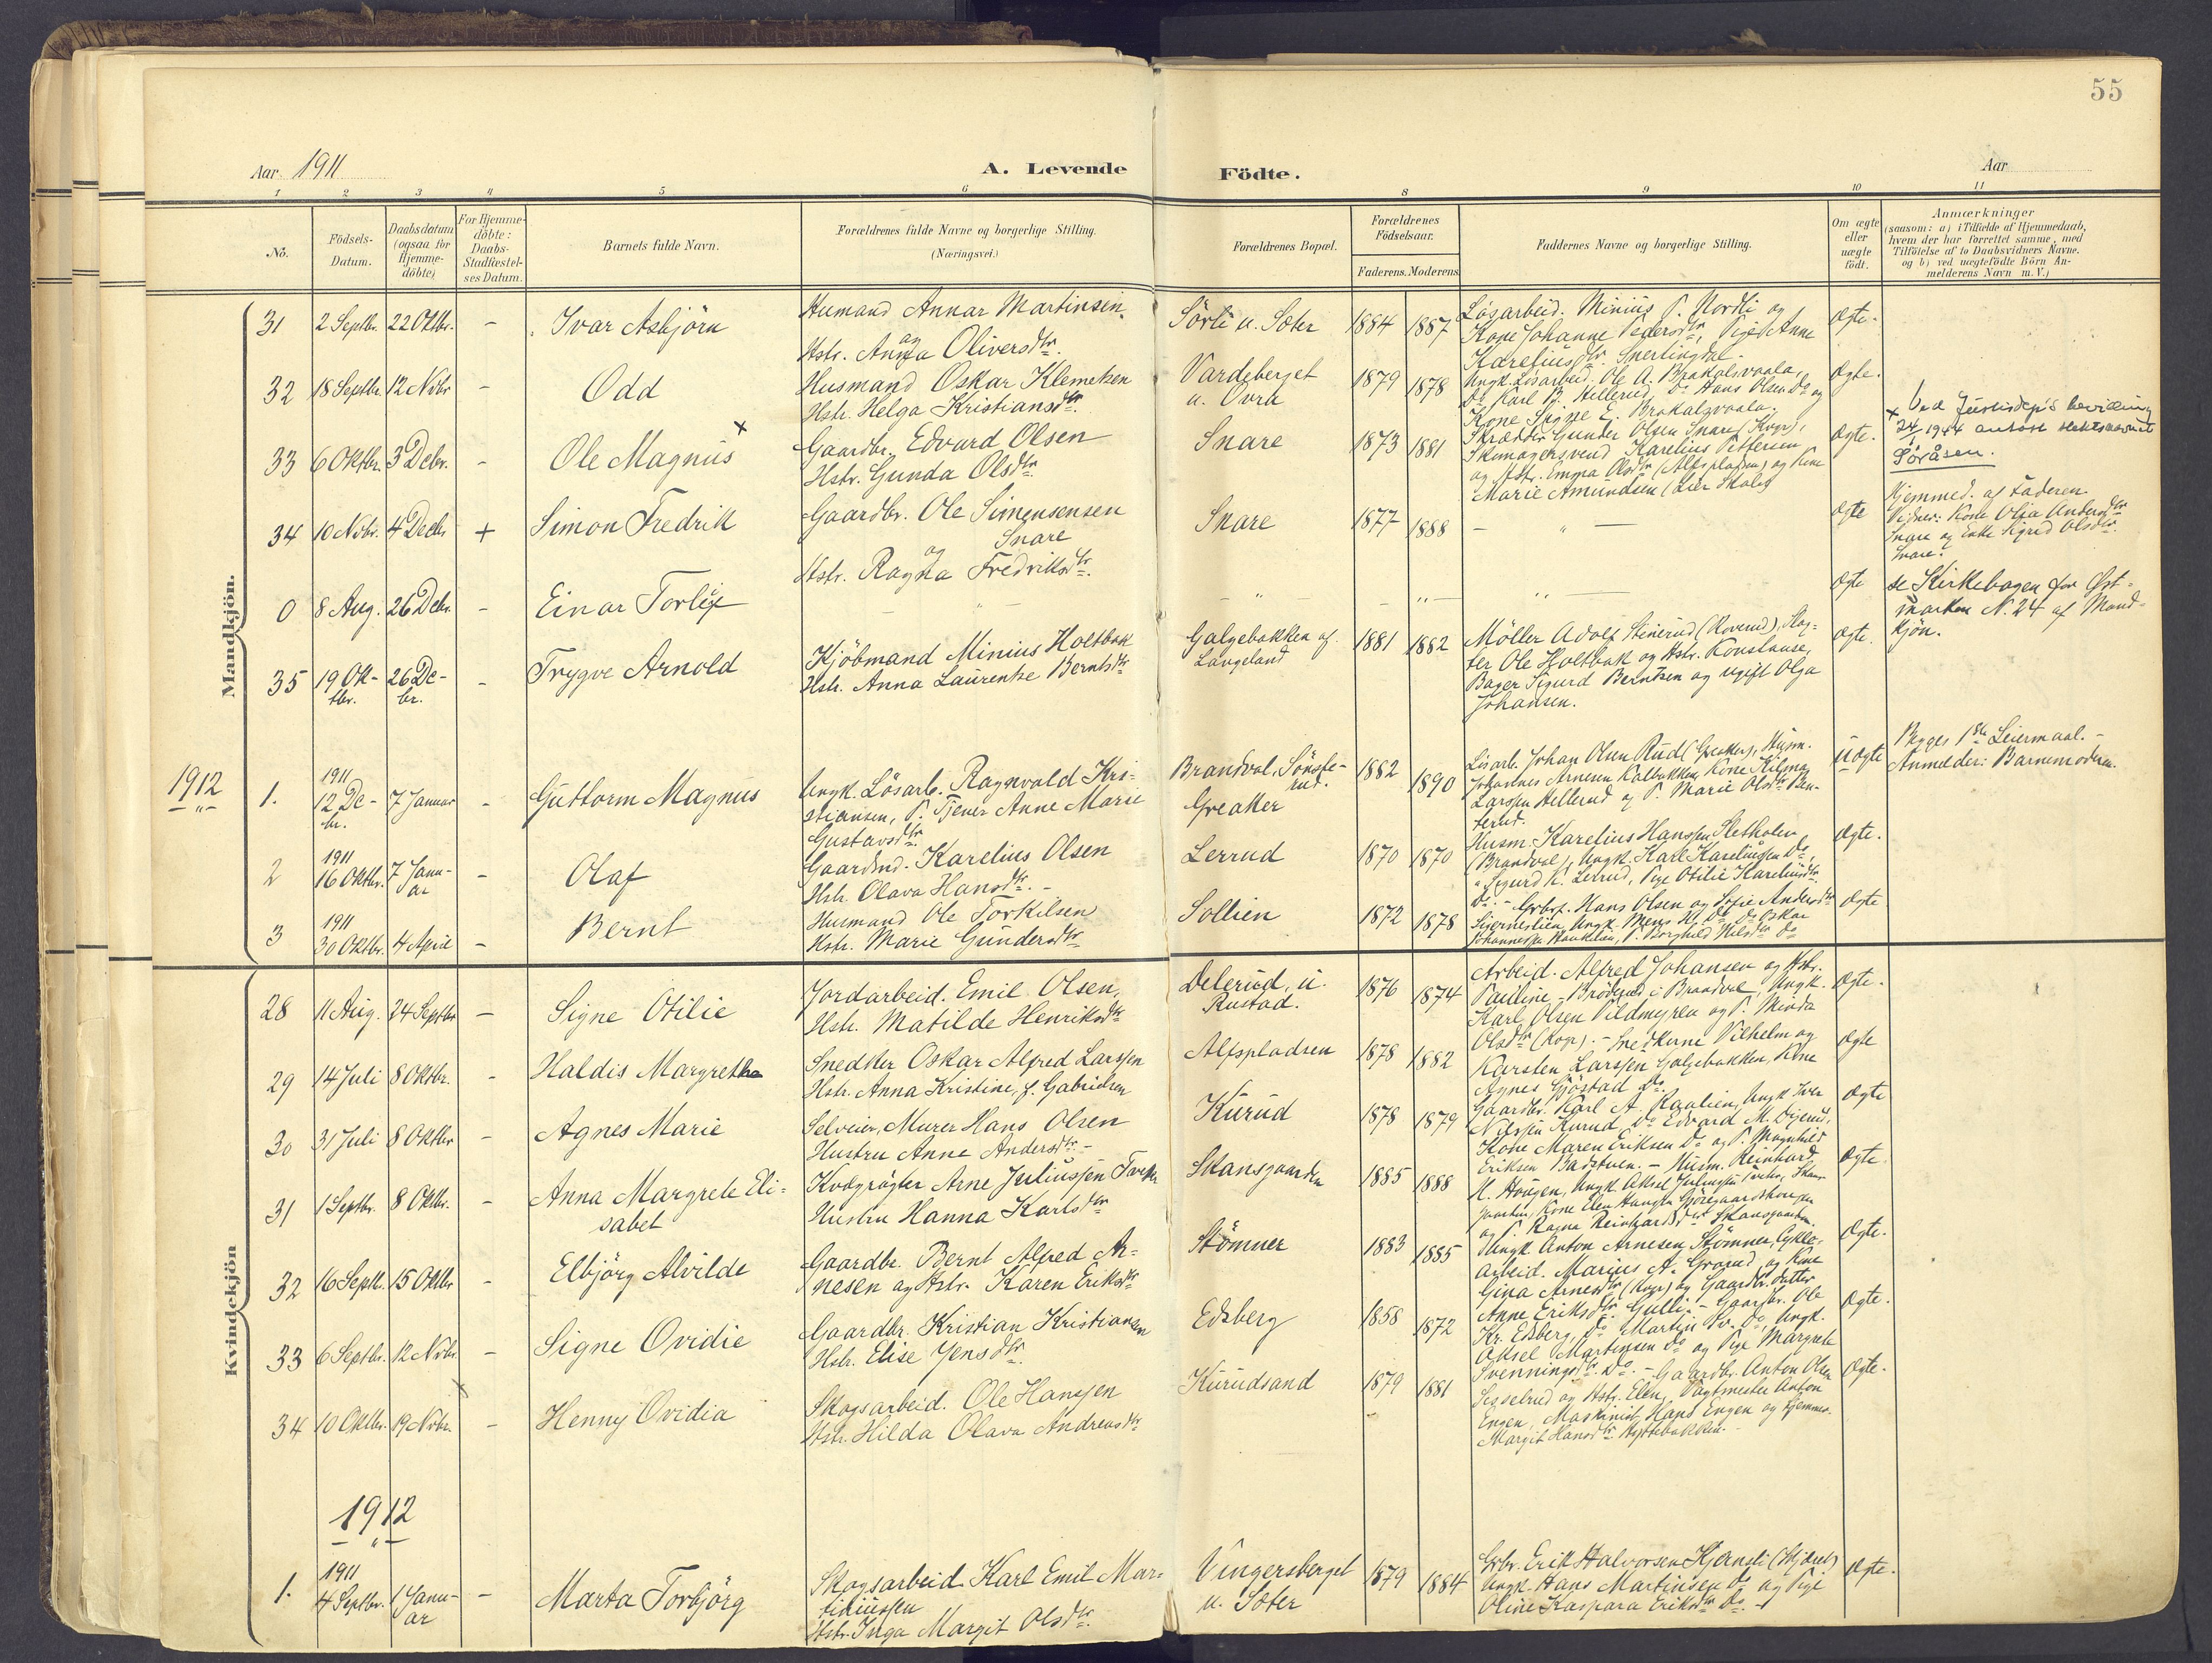 55
Aar 1911
A. Levende Födte.
Aar
1 2 3 4 5 6 8 9 10 11
No.
Födsels-
Datum.
Daabsdatum
(ogsaa for
Hjemme-
döbte)
For Hjemme-
döbte:
Daabs-
Stadfæstel-
ses Datum.
Barnets fulde Navn.
Forældrenes fulde Navne og borgerlige Stilling.
(Næringsvei.)
Forældrenes Bopæl.
Forældrenes
Födselsaar.
Faderens. Moderens.
Faddernes Navne og borgerlige Stilling.
Om ægte
eller
uægte
födt.
Anmærkninger
(saasom: a) i Tilfælde af Hjemmedaab,
hvem der har forrettet samme, med
Tilföielse af to Daabsvidners Navne.
og b) ved uægtefödte Börn An-
melderens Navn m. V.)
Mandkjön.
31 2 Septbr. 22 Oktbr. - Ivar Asbjörn
Husmand Annar Martinsen
og
Hstr. Anna Oliversdtr.
Sörli u. Sæter 1884 1887
Lösarbeid. Minius P. Nordli og
Kone Johanne Pedersdtr, Pige Anne
Kareliusdtr Snertingdal.
Ægte.
32 18 Septbr. 12 Novbr. - Odd
Husmand Oskar Klemetsen
Hstr. Helga Kristiansdtr.
Vardeberget
u. Övra 1879 1878
Ungk. Lösarbeid. Ole A. Brakalsvaala,
Do Karl B. Hellerud, Do Hans Olsen Do og
Kone Signe E. Brakalsvaala.
Ægte.
33 6 Oktbr. 3 Decbr. - Ole Magnus x
Gaardbr. Edvard Olsen
Hstr. Gunda Olsdtr.
Snare 1873 1881
Skrædder Gunder Olsen Snare (Kvgr),
Skomagersvend Karelius Pettersen
og Hstr. Emma Olsdtr (Alfspladsen) og Kone
Marie Amundsen (Lier Skole)
Ægte.
x Ved Justisdep's bevilling
24/1 1944 antatt slektsnavnet
Söråsen.
34 10 Novbr. 4 Decbr. + Simon Fredrik
Gaardbr. Ole Simensensen
Snare
og
Hstr. Ragna Fredriksdtr.
Snare 1877 1888 - " -
Ægte
Hjemmed. af Faderen.
Vidner: Kone Olea Andersdtr
Snare og Enke Sigrid Olsdtr.
Snare.
0 8 Aug. 26 Decbr. - Einar Torleif
- " - - " - - " - - " -
Ægte
se Kirkebogen for Øst-
marken N. 24 af Mand-
kjön.
35 19 Ok-
tbr.
26 De-
br.
- Trygve Arnold
Kjöbmand Minius Holtbak
Hstr. Anna Laurentse Berntsdtr
Galgebakken af
Langeland 1881 1882
Möller Adolf Stenerud (Roverud), Slag-
ter Ole Holtbak og Hstr. Konstanse,
Bager Sigurd Berntsen og ugift Olga
Johansen.
Ægte.
1912
- " -
1. 1911
12 De-
br.
7 Januar - Guttorm Magnus
Ungk. Lösarb. Ragnvald Kri-
stiansen, P. Tjener Anne Marie
Gustavsdtr.
Brandval, Sönste-
rud.
Greaker
1882 1890
Lösarb. Johan Olsen Rud (Greaker), Husm.
Johannes Arnesen Kalbakken, Kone Hilma
Larssen Hellerud og P. Marie Olsdtr Ben-
terud.
Uægte
Begges 1ste Leiermaal. -
Anmelder: Barnemoderen.
2 1911
16 Oktbr.
7 Janu-
ar
- Olaf
Gaardmd. Karelius Olsen
Hstr. Olava Hansdtr. -
Lerrud 1870 1870
Husm. Karelius Hanssen Sletholen
(Brandval), Ungk. Karl Kareliussen Do,
" Sigurd K. Lerrud, Pige Otilie Kareliusdtr
Do. -
Ægte.
3 1911
30 Oktbr. 4 April - Bernt
Husmand Ole Torkilsen
Hstr. Marie Gundersdtr
Sollien 1872 1878
Grbrf. Hans Olsen og Sofie Andersdtr
Sigernerlien, Ungk. Mens H. Do, Do Oskar
Johannessen, P. Borghild Nilsdtr Do
Ægte
Kvindekjön
28 11 Aug. 24 Septbr. - Signe Otilie
Jordarbeid. Emil Olsen,
Hstr. Matilde Henriksdtr
Delerud, u.
Rustad. 1876 1874
Arbeid. Alfred Johansen og Hstr.
Pauline, Bröderud i Brandval, Ungk.
Karl Olsen Vildmyren og P. Minda
Olsdtr (Kvgr). -
Ægte.
29 14 Juli 8 Oktbr. - Haldis Margrethe
Snedker Oskar Alfred Larssen
Hstr. Anna Kristine, f. Gabrielsen
Alfspladsen 1878 1882
Snedkerne Vilhelm og
Karsten Larssen Galgebakken, Kone
Agnes Sjöstad Do.
Ægte
30 31 Juli 8 Oktbr. - Agnes Marie
Selveier, Murer Hans Olsen
Hustru Anne Andersdtr. -
Kurud 1878 1879
Gaardbr. Karl A. Raalien, Ungk. Iver
Nilssen Kurud, Do Edvard M. Digerud,
Kone Maren Eriksen Do og P. Magnhild
Eriksen Badstuen. -
Ægte
31 1 Septbr. 8 Oktbr. - Anna Margrete Eli-
sabet
Kvægrögter Arne Juliussen Tveter
Hustru Hanna Karlsdtr
Skansgaarden 1885 1888
Husm. Reinhard
M. Haugen, Ungk. Aksel Juliussen Tveter, Skans-
gaarden, Kone Elen Haugen
og P. Ragna Reinhardsdtr Skansgaarden.
Ægte.
32 16 Septbr. 15 Oktbr - Elbjörg Alvilde
Gaardbr. Bernt Alfred Ar-
nesen og Hstr. Karen Eriksdtr
Stömner 1883 1885
Ungk. Anton Arnesen Stömner, Cykle-
arbeid. Marius A. Grorud og Kone
Gina Arnesdtr (Kvgr) og Gaardbr. Datter
Anne Eriksdtr Gulli. -
Ægte.
33 6 Septbr. 12 Novbr - Signe Ovidie
Gaardbr. Kristian Kristiansen
Hstr. Elise Jensdtr.
Edsberg 1858 1872
Gaardbr. Ole
Kr. Edsberg, Do Martin Sv. Do, Ungk.
Aksel Martinsen Do og Pige Margrete
Svenningsdtr. Do. -
Ægte.
34 10 Oktbr. 19 Novbr. - Henny Ovidia
Skogsarbeid. Ole Hanssen
Hstr. Hilda Olava Andreasdtr
Kurudsand 1879 1881
Gaardbr. Anton Olsen
Sesselrud og Hstr. Elen, Vagtmester Anton
Engen, Maskinist Hans Engen og Hjemmev.
Margit Hansdtr Hyttebakken. -
Ægte.
1912
- " -
1. 1911
4 Septbr.
1 Janu-
ar
- Marta Torbjörg
Skogsarbeid. Karl Emil Mar-
tiniussen
Hstr. Inga Margit Olsdtr.
Vingersberget
u. Sæter 1879 1884
Grbr. Erik Halvorsen Kjerneli
Ungk. Hans Martinsen Do og Pige
Oline Kaspara Eriksdtr Do. -
Ægte.